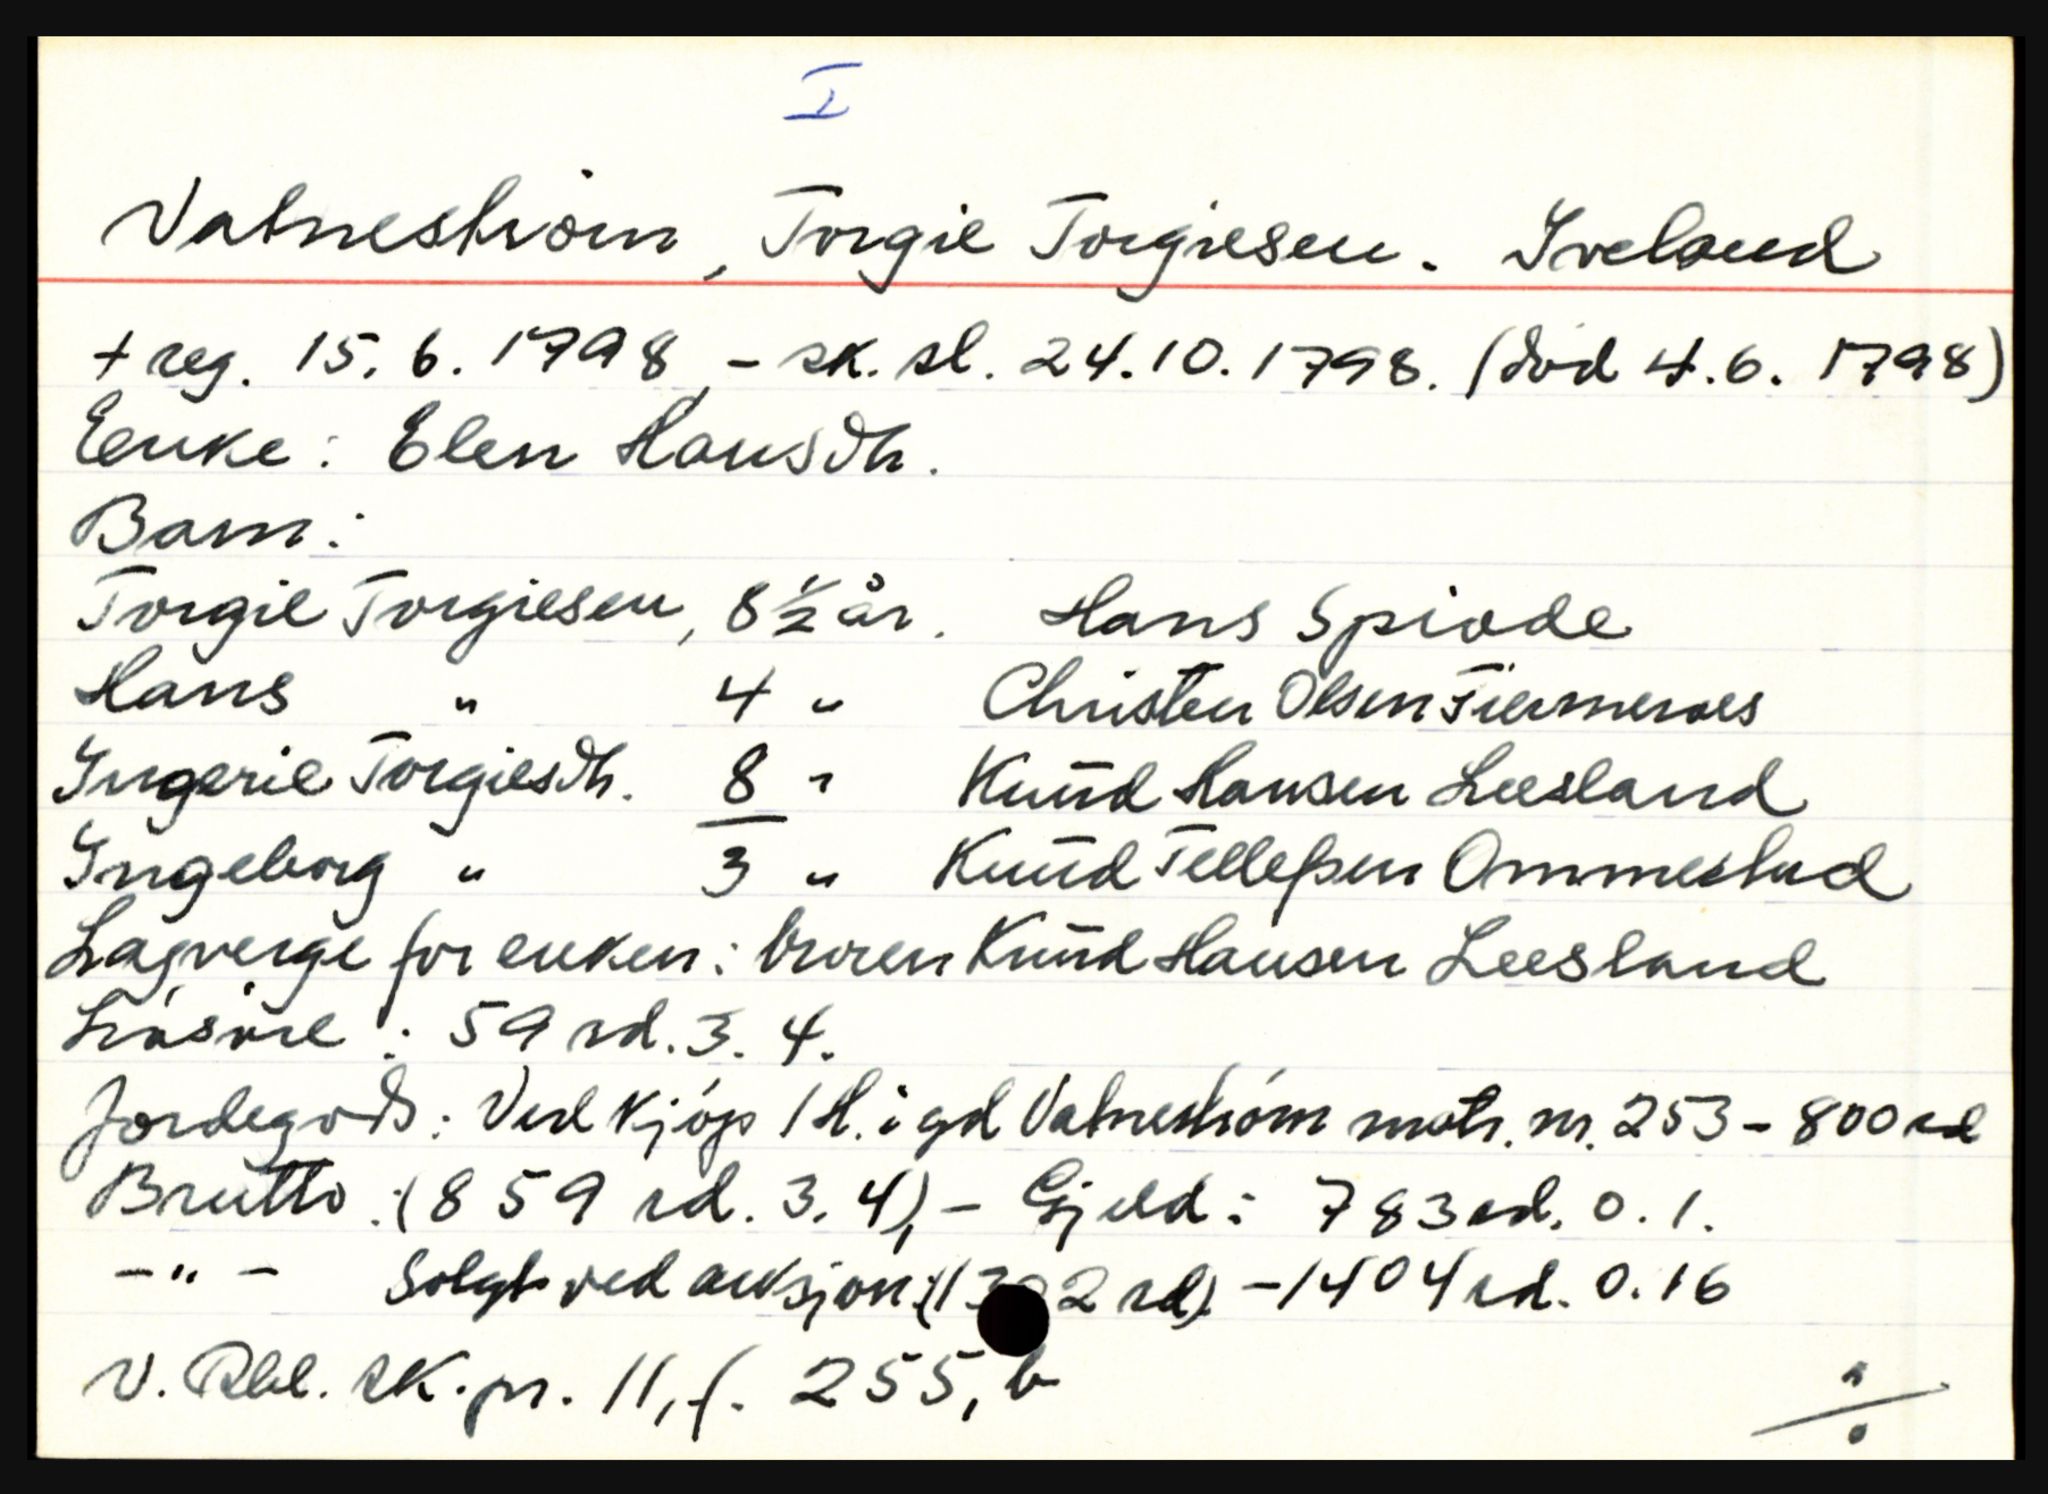 I
Vatneström, Torgie Torgiesen. Iveland
+ reg. 15.6.1798 - sk.sl. 24.10.1798. (død 4.6.1798)
Enke: Elen Hansdtr.
Barn:
Torgie Torgiesen, 8 1/2 år. Hans Spiode
Hans " 4 " Christen Olsen
Ingerie Torgiesdtr. 8 " Knūd Hansen Leesland
Ingeborg " 3 " Knūd Telleßen Ommestad
Lagverge for enken: broren Knūd Hansen Leesland
Lösöre: 59 rd. 3. 4.
Jordegods: Ved kjöp 1 H. i gd Vatneström matr. nr. 253 - 800 rd
Brutto: (859 rd. 3. 4), - Gjeld: 783 rd. 0. 1.
- " - Solgt ved auksjon: rd) - 1404 rd. 0. 16
V. Rbl. sk.pr. 11, f. 255, b